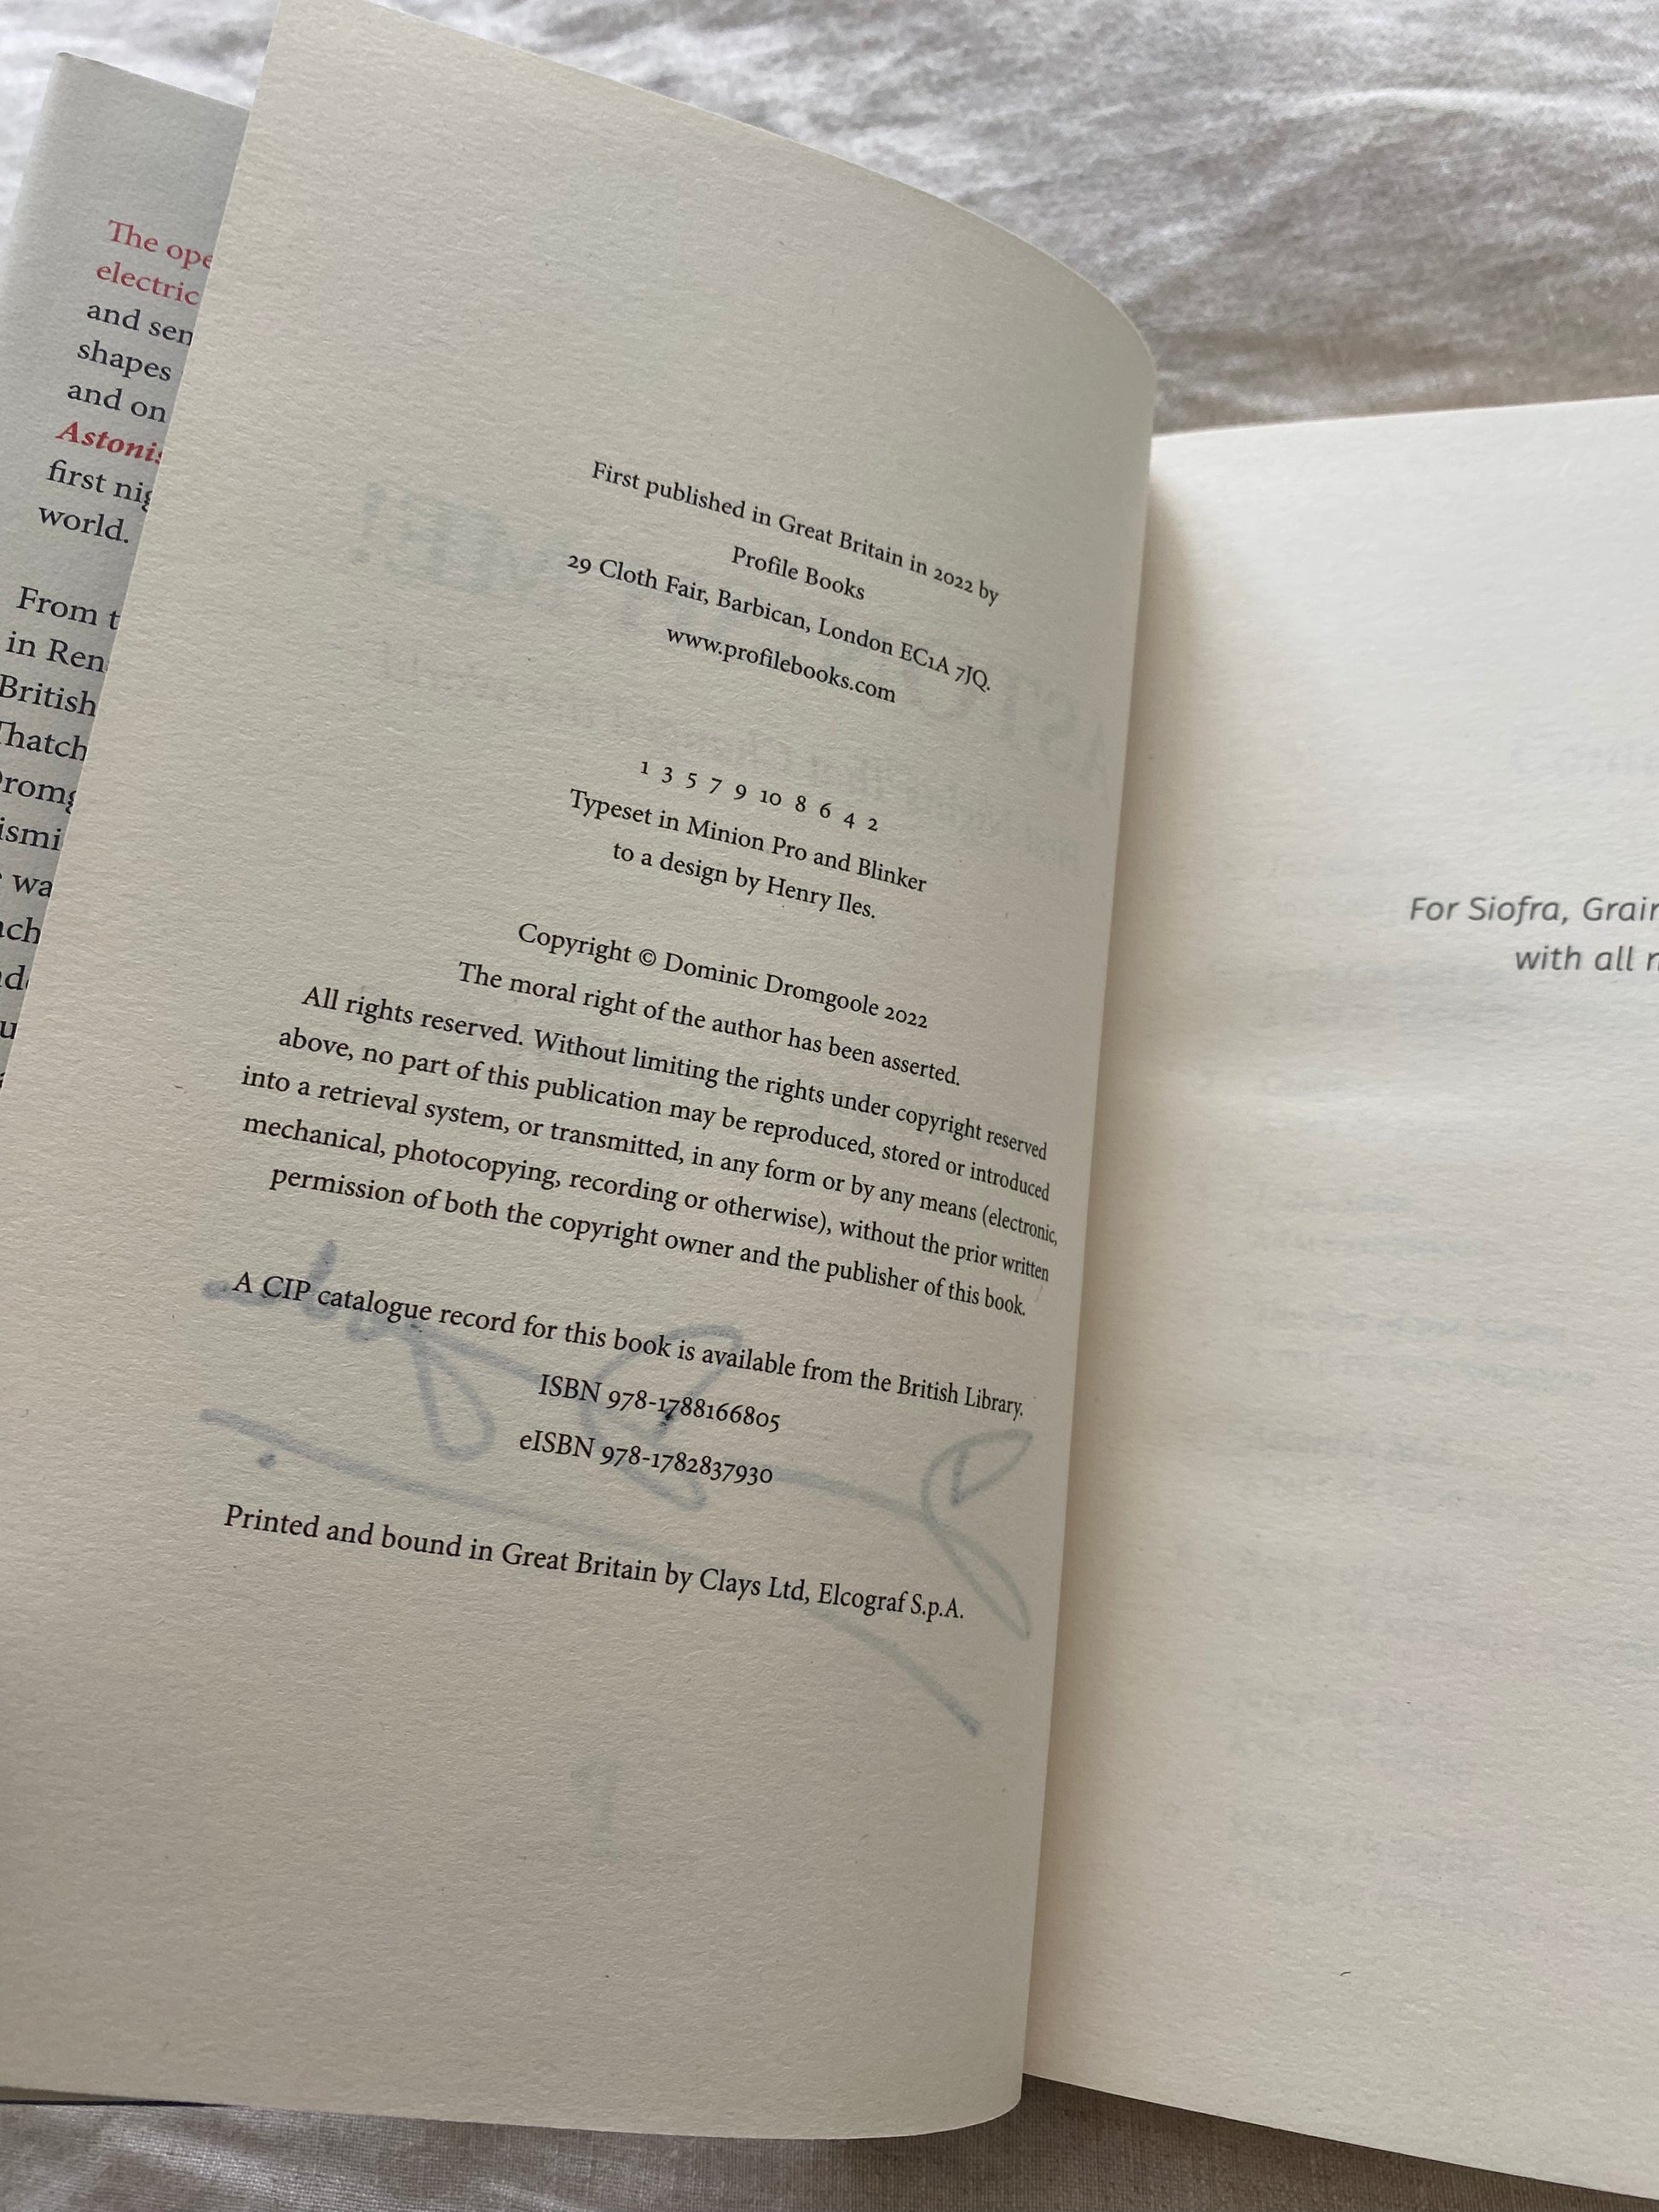 The ope
electric
and sen
shapes
and on
Astonis
first nig
world.
From t
in Ren
British
Thatch
Dromg
ismi
wa
ach
nd
u
First published in Great Britain in 2022 by
Profile Books
29 Cloth Fair, Barbican, London EC1A 7JQ.
www.profilebooks.com
1 3 5 7 9 10 8 6 4 2
Typeset in Minion Pro and Blinker
to a design by Henry Iles.
Copyright © Dominic Dromgoole 2022
The moral right of the author has been asserted.
All rights reserved. Without limiting the rights under copyright reserved
above, no part of this publication may be reproduced, stored or introduced
into a retrieval system, or transmitted, in any form or by any means (electronic,
mechanical, photocopying, recording or otherwise), without the prior written
permission of both the copyright owner and the publisher of this book.
A CIP catalogue record for this book is available from the British Library.
ISBN 978-1788166805
eISBN 978-1782837930
Printed and bound in Great Britain by Clays Ltd, Elcograf S.p.A.
For Siofra, Grain
with all